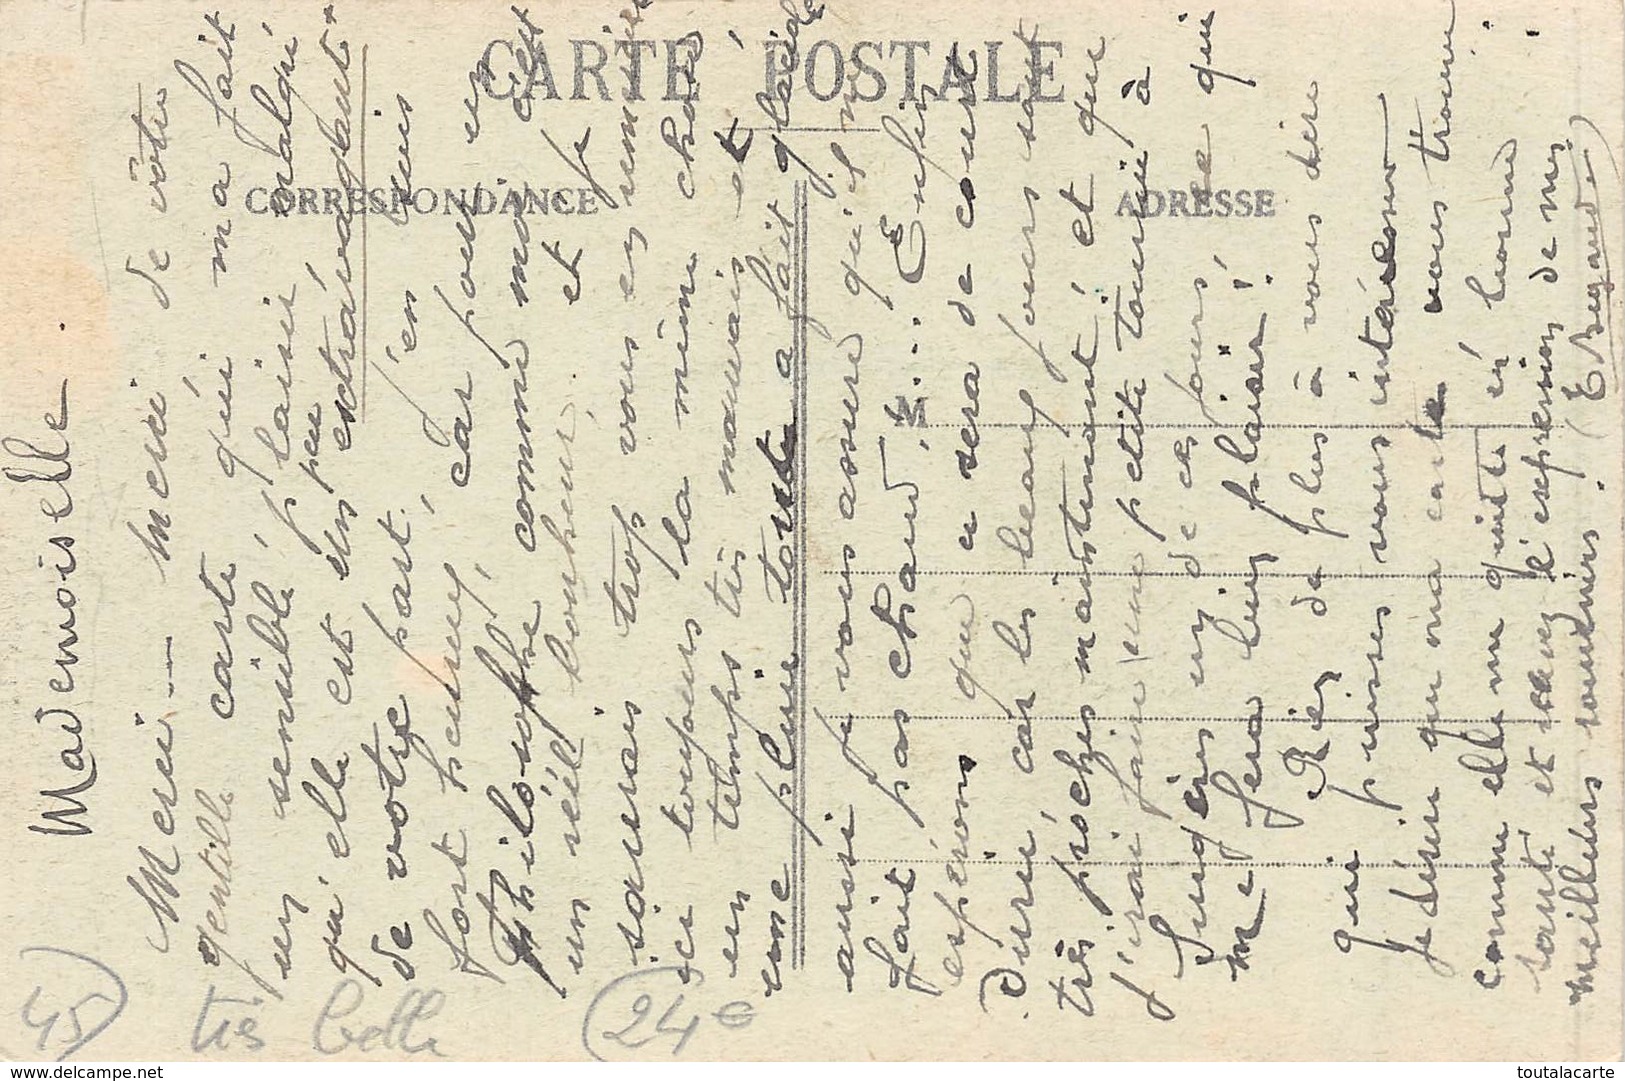 CARTE POSTALE
CORRESPONDANCE
ADRESSE
Mademoiselle.
Merci --- merci de votre
gentille carte qui m'a fait
un sensible plaisir malgré
qu'elle est un peu extravagante
de votre part, j'en suis
fort heureux, car pour un
Philosophe comme moi c'est
un réel bonheur. et je
saurais trop vous en remercier
ici toujours la même chose
un temps très mauvais et
une pluie toute a fait glaciale
aussi je vous assure qu'il ne
fait pas chaud !.... Enfin
espérons que ce sera de courte
durée, car les beaux jours sont
très proches maintenant, et que
j'irai faire une petite tournée à
Sungères un de ces jours, ce qui
me fera bien plaisir !
Rien de plus à vous dire
qui puisse vous intéresser
je désire que ma carte vous trouve
comme elle me quitte en bonne
santé et recevez l'expression de mes
meilleurs souvenirs.
45
très belle
24€
www.delcampe.net
toutalacarte